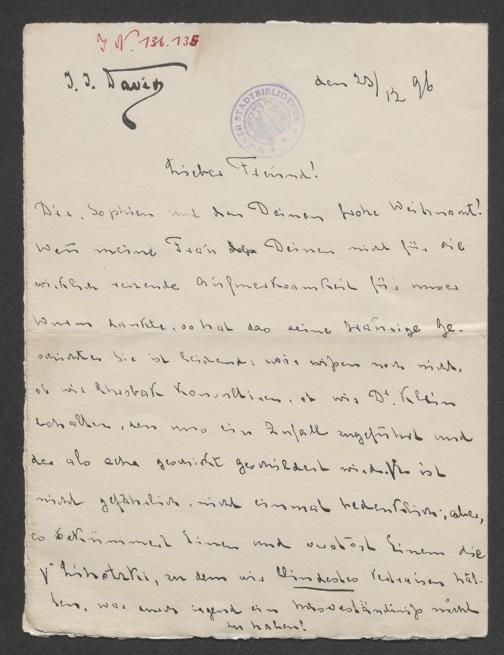 J. N. 136.135
J. J. David
den 23/12 96
WIENER STADTBIBLIOTHEK
Lieber Freund!
Dir, Sophien und den Deinen frohe Weihnacht!
Wenn meine Frau Deinen nicht für die
wirklich reizende Aufmerksamkeit für unser
Wurm dankte, so hat das seine traurige Ge-
schichte. Sie ist leidend: wir wissen noch nicht,
ob wir Chrobak konsultiren, ob wir Dr. Klein
behalten, den uns ein Zufall zugeführt und
der als sehr geschickt geschildert wird. Es ist
nicht gefährlich, nicht einmal bedenklich; aber,
es bekümmert Einen und verstört Einem die
zu dem wir Mindestes Vertrauen hät-
ten, was auch irgend ein Missverständniß nicht
zu haben!